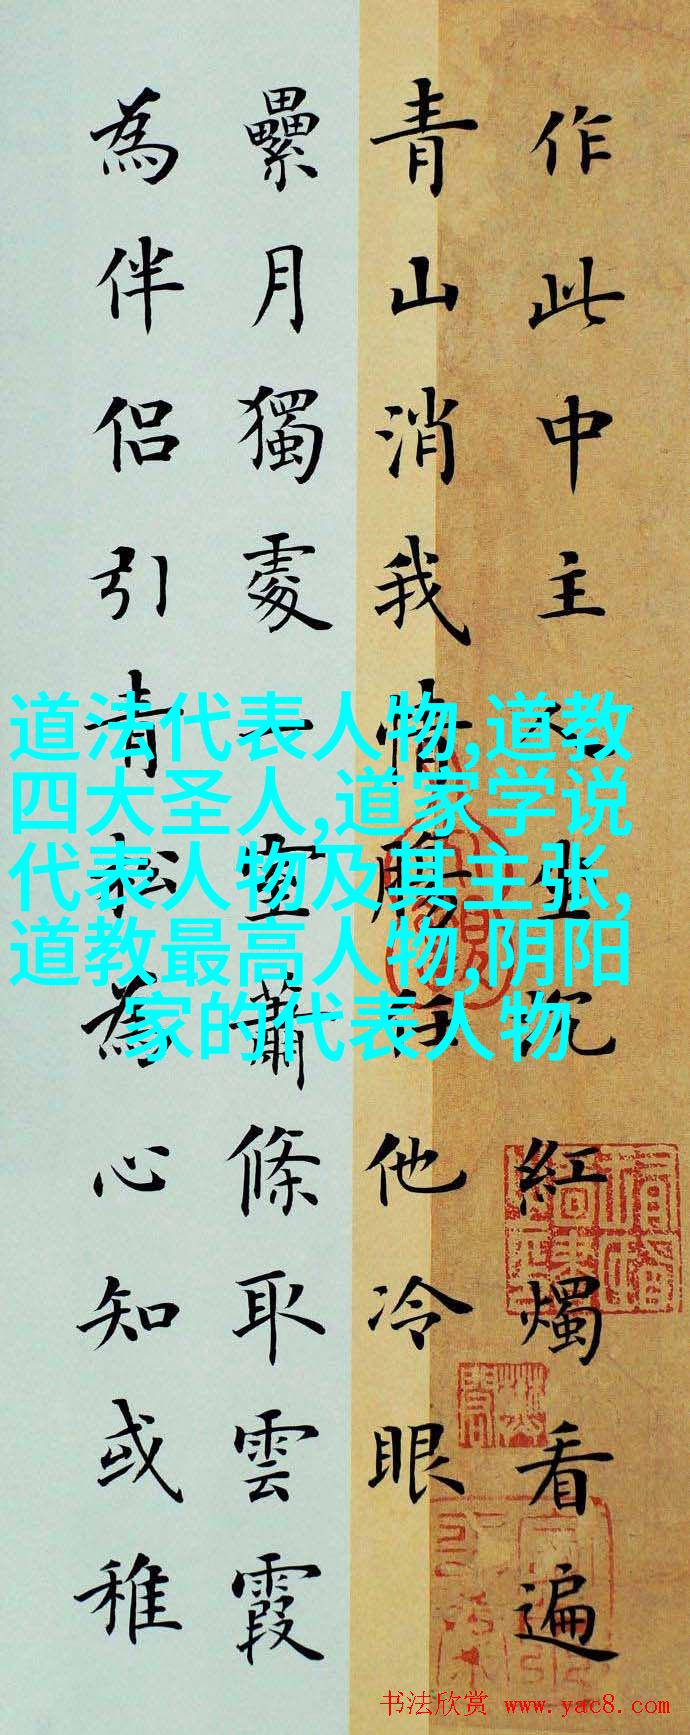 作此中主坐紅燭看遍
青山消我情腸任他冷眼
纍月獨處一室蕭條取雲霞
為伴侶引青松為心知或稚
道法代表人物,道教
四大圣人,道家学说
代表人物及其主张,
道教最高人物,阴阳
家的代表人物
书法欣赏 www.yac8.com